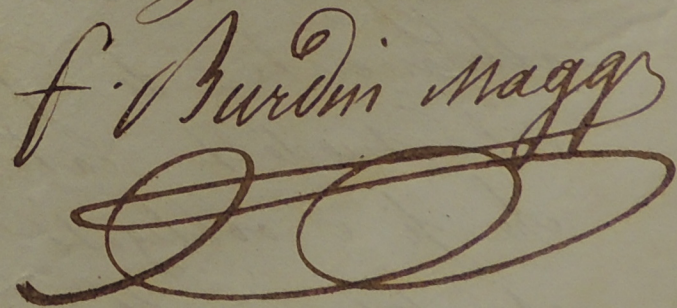 f. Burdin Magg